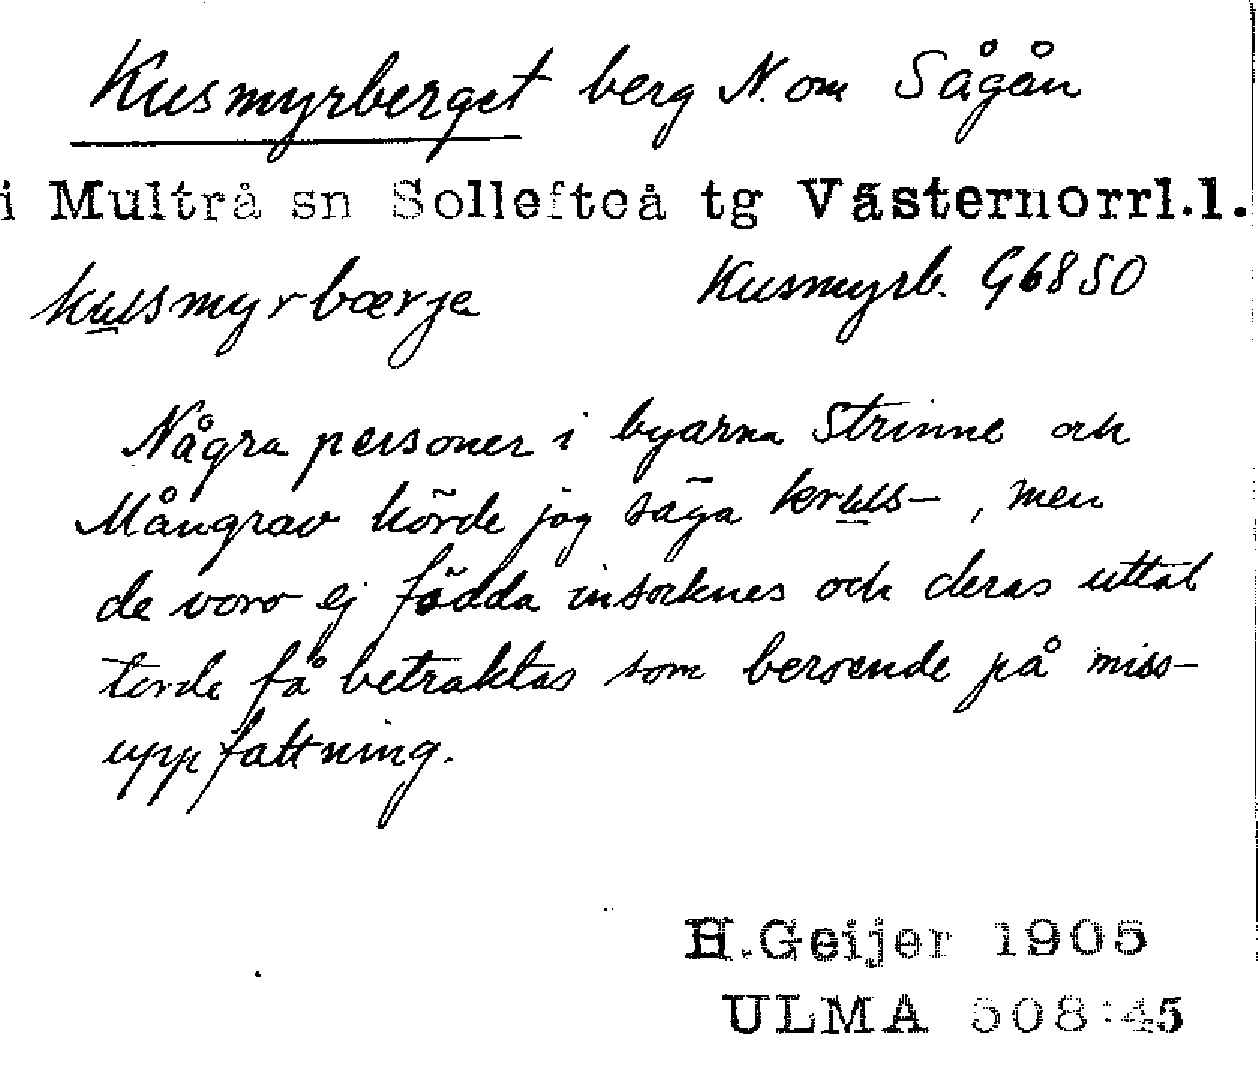 Kusmyrberget berg N. om Sågån
i Multrå sn Sollefteå tg Västernorrl.l.
kusmyrbærje Kusmyrb. G6850
Några personer i byarna Strinne och
Mångrav hörde jag säga krus-, men
de voro ej födda insocknes och deras uttal
torde få betraktas som beroende på miss-
uppfattning.
H.Geijer 1905
ULMA 508:45